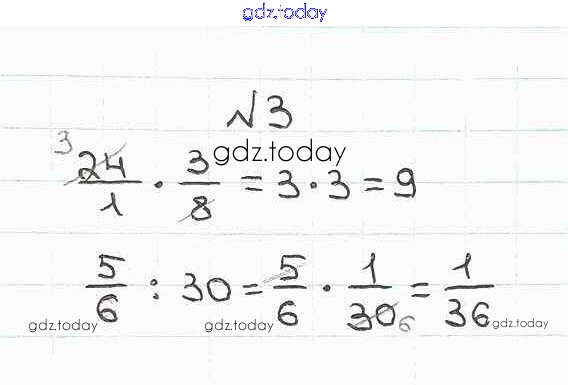 gdz.today
№3
gdz.today
3
24/1 · 3/8 = 3 · 3 = 9
5/6 : 30 = 5/6 · 1/30 = 1/36
6
gdz.today gdz.today gdz.today